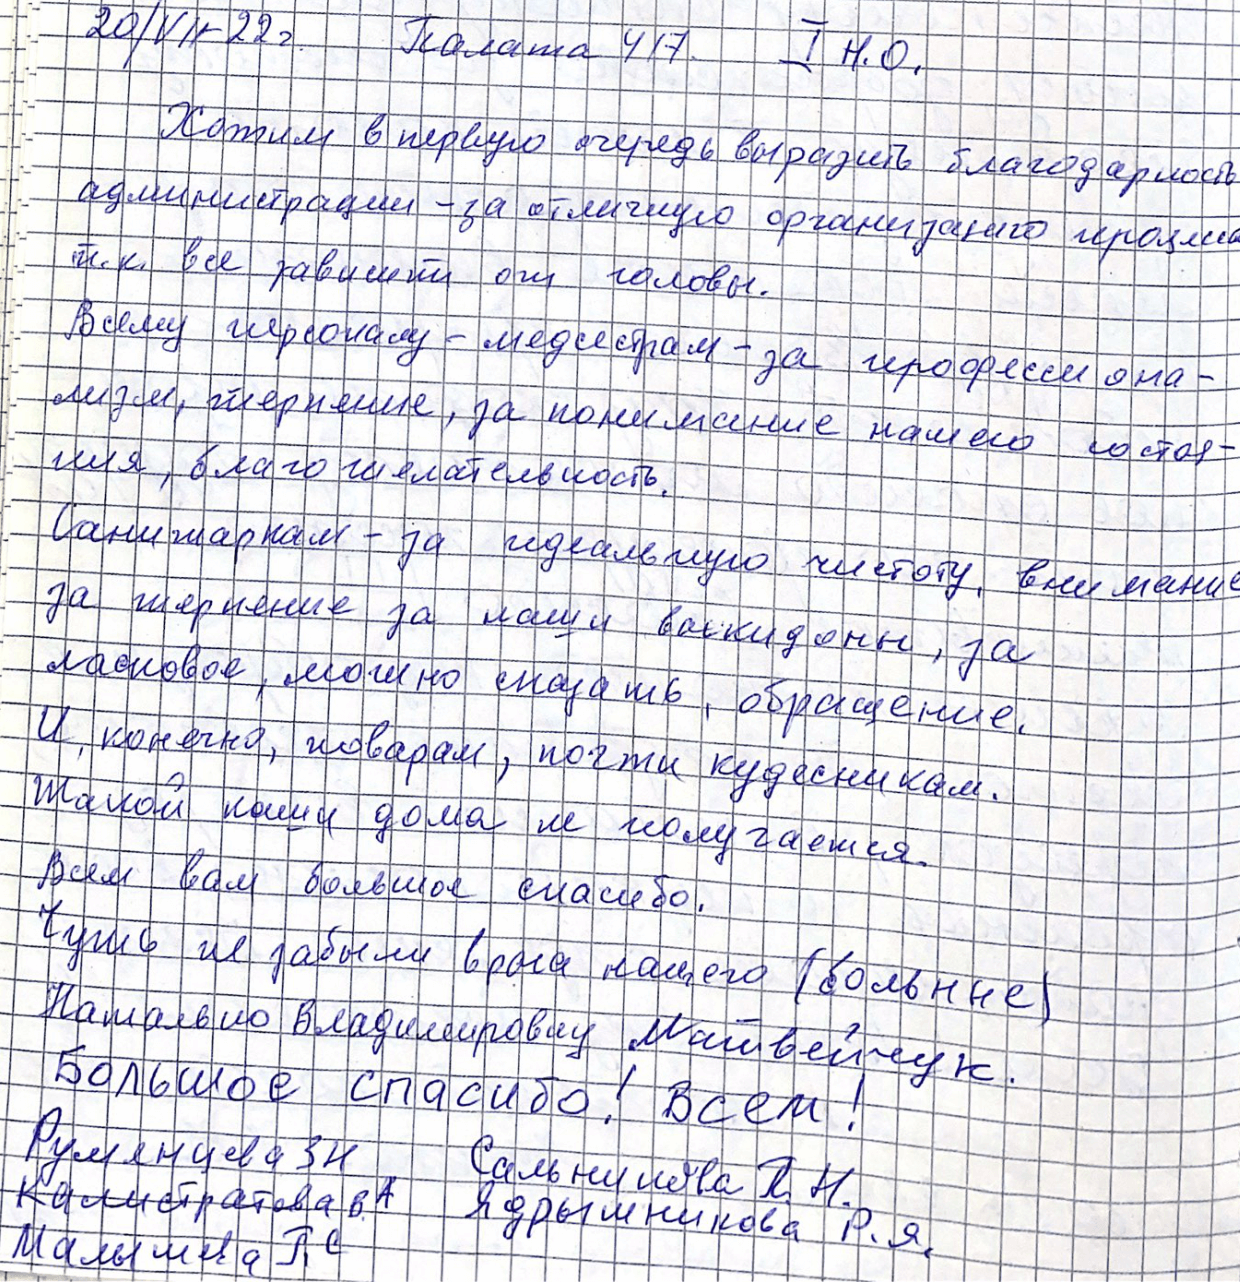 20/VII-22г. Палата 417. I Н.О.
Хотим в первую очередь выразить благодарность
администрации - за отличную организацию процесса
т.к. все зависит от головы.
Всему персоналу - медсестрам - за професси она-
лизм, терпение, за понимание нашего состоя-
ния, благожелательность.
Санитаркам - за идеальную чистоту, внимание
за терпение за наши выкидоны, за
ласковое, можно сказать, обращение.
И, конечно, поварам, почти кудесникам.
Такой каши дома не получается.
Всем вам большое спасибо.
Чуть не забыли врача нашего (больные)
Наталью Владимировну Матвейчук.
Большое спасибо! Всем!
Румянцева ЗН Сальникова Н.
Калистратова В.А Ядрышникова Р.Я.